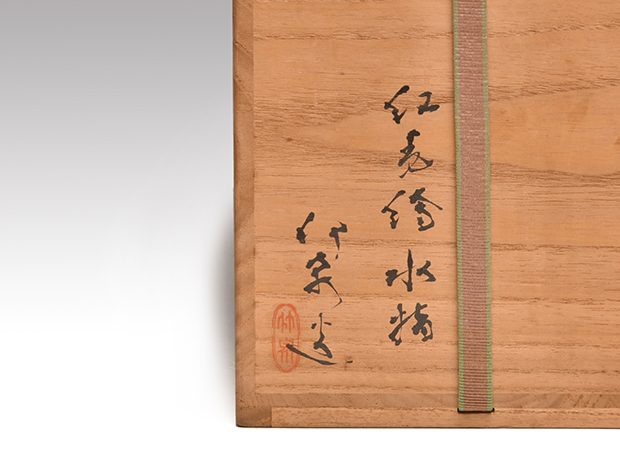 紅毛繪水指
竹泉造
竹泉